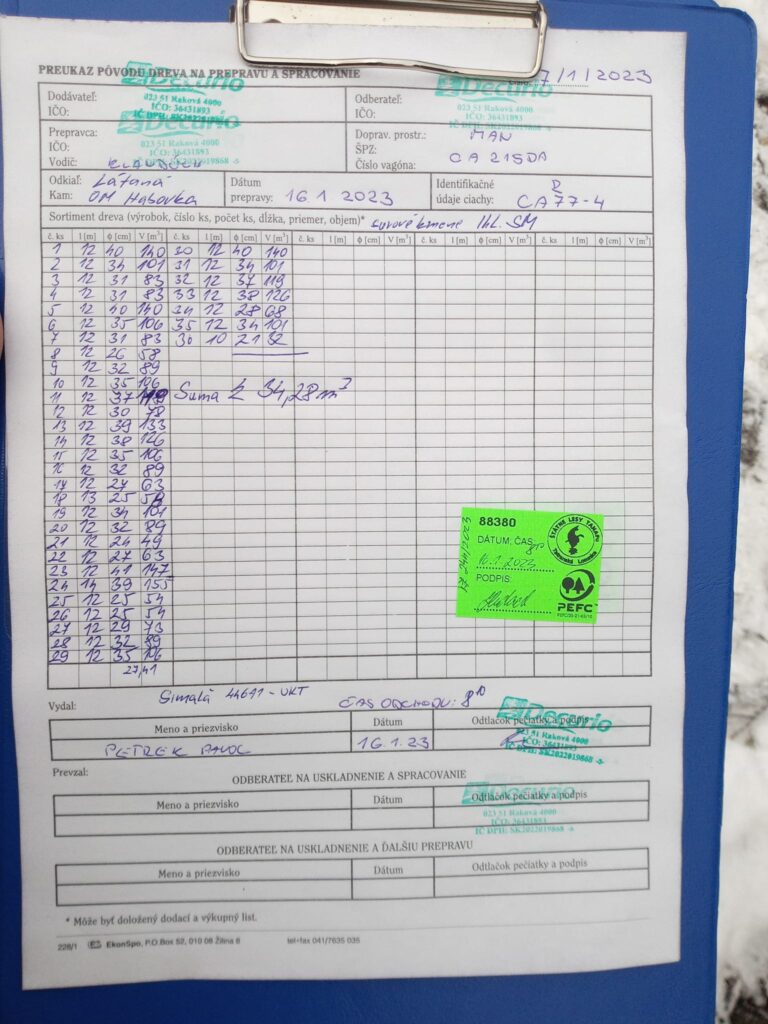 PREUKAZ PÔVODU DREVA NA PREPRAVU A SPRACOVANIE
7/1/2023
Decurio
023 51 Raková 4000
IČO: 36431893
IČ DPH: SK2022019868
Decurio
023 51 Raková 4000
IČO: 36431893
Dodávateľ:
IČO:
Odberateľ:
IČO:
Decurio
023 51 Raková 4000
IČO: 36431893
SK2022019868
Prepravca:
IČO:
Vodič:
Doprav. prostr.: MAN
ŠPZ:
Číslo vagóna: CA 215DA
Odkiaľ: Látaná
Kam: OM Habovka
Dátum
prepravy: 16.1 2023
Identifikačné
údaje ciachy: CA77-4
Sortiment dreva (výrobok, číslo ks, počet ks, dĺžka, priemer, objem)* surové kmene Ihl. SM
č. ks l [m] ϕ [cm] V [m³] č. ks l [m] ϕ [cm] V [m³] č. ks l [m] ϕ [cm] V [m³] č. ks l [m] ϕ [cm] V [m³] č. ks l [m] ϕ [cm] V [m³]
1 12 40 140 30 12 40 140
2 12 34 101 31 12 34 101
3 12 31 83 32 12 37 119
4 12 31 83 33 12 38 126
5 12 40 140 34 12 28 68
6 12 35 106 35 12 34 101
7 12 31 83 30 10 21 32
8 12 26 58
9 12 32 89
10 12 35 106
11 12 37 119 Suma Σ 34,28 m³
12 12 30 78
13 12 39 133
14 12 38 126
15 12 35 106
16 12 32 89
17 12 27 63
18 13 25 58
19 12 34 101
20 12 32 89
21 12 24 49
22 12 27 63
23 12 41 147
24 14 39 155
25 12 25 54
26 12 25 54
27 12 29 73
28 12 32 89
29 12 35 106
27,41
88380
DÁTUM, ČAS
16.1.2023
PODPIS
ŠTÁTNE LESY TANAPu
Tatranská Lomnica
PEFC
Vydal:
44691 - UKT
ČAS ODCHODU: 8¹⁰
Meno a priezvisko Dátum Odtlačok pečiatky a podpis
PETREK PAVOL 16.1.23
Decurio
023 51 Raková 4000
IČO: 36431893
IČ DPH: SK2022019868
Prevzal:
ODBERATEĽ NA USKLADNENIE A SPRACOVANIE
Meno a priezvisko Dátum Odtlačok pečiatky a podpis
Decurio
023 51 Raková 4000
IČO: 36431893
IČ DPH: SK2022019868
ODBERATEĽ NA USKLADNENIE A ĎALŠIU PREPRAVU
Meno a priezvisko Dátum Odtlačok pečiatky a podpis
* Môže byť doložený dodací a výkupný list.
226/1 EkonSpo, P.O.Box 52, 010 08 Žilina 8 tel+fax 041/7635 035